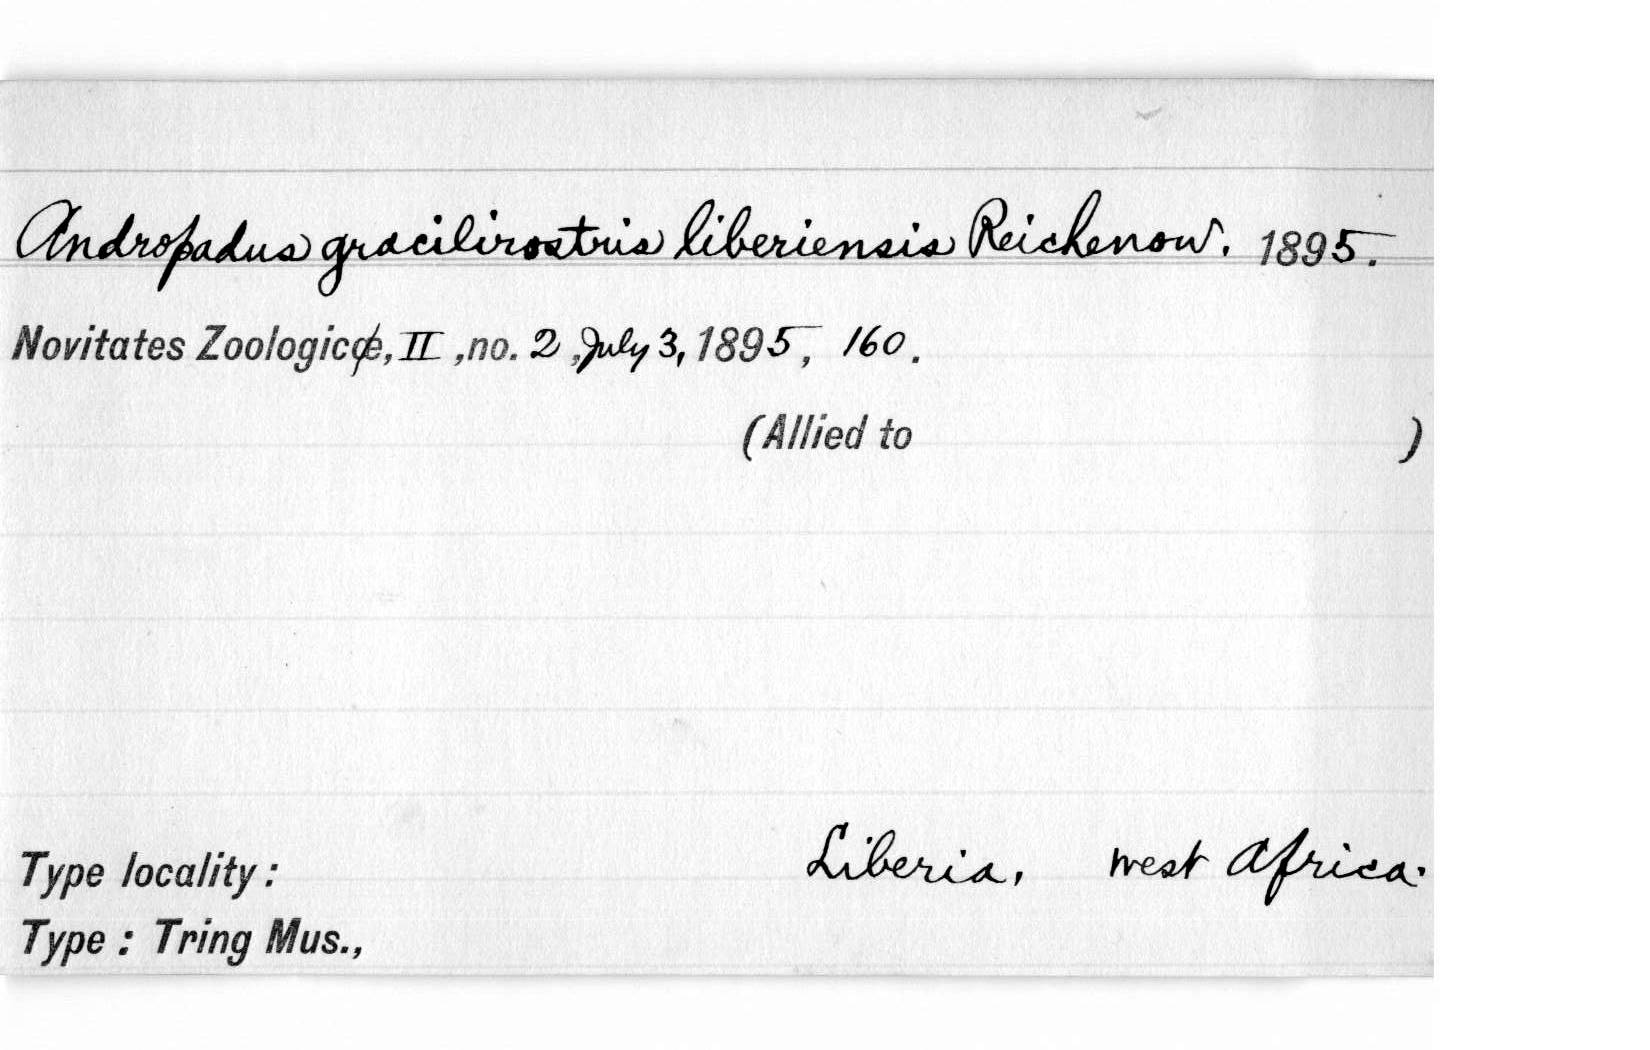 Andropadus gracilirostris liberiensis Reichenow. 1895.
Novitates Zoologicæ, II, no. 2, July 3, 1895, 160.
(Allied to )
Type locality: Liberia, West Africa.
Type: Tring Mus.,